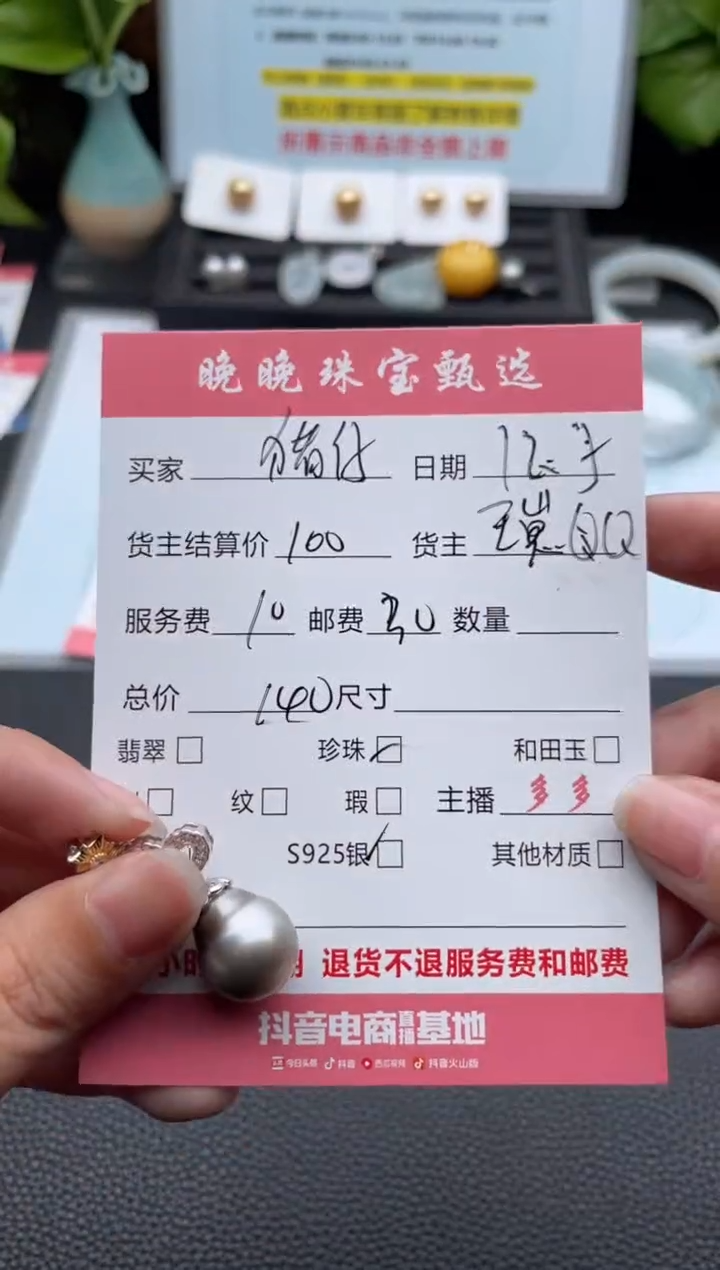 晚晚珠宝甄选
买家 猪仔 日期
货主结算价 100 货主
服务费 10 邮费 30 数量
总价 140 尺寸
翡翠 珍珠 和田玉
纹 瑕 主播 多多
S925银 其他材质
退货不退服务费和邮费
抖音电商直播基地
今日头条 抖音 西瓜视频 抖音火山版